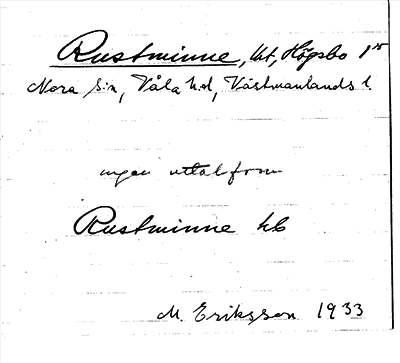 Rustminne, lht, Högsbo 1¹⁵
Nora s:n, Våla hd, Västmanlands l.
ingen uttalsform
Rustminne hb
M. Eriksson 1933